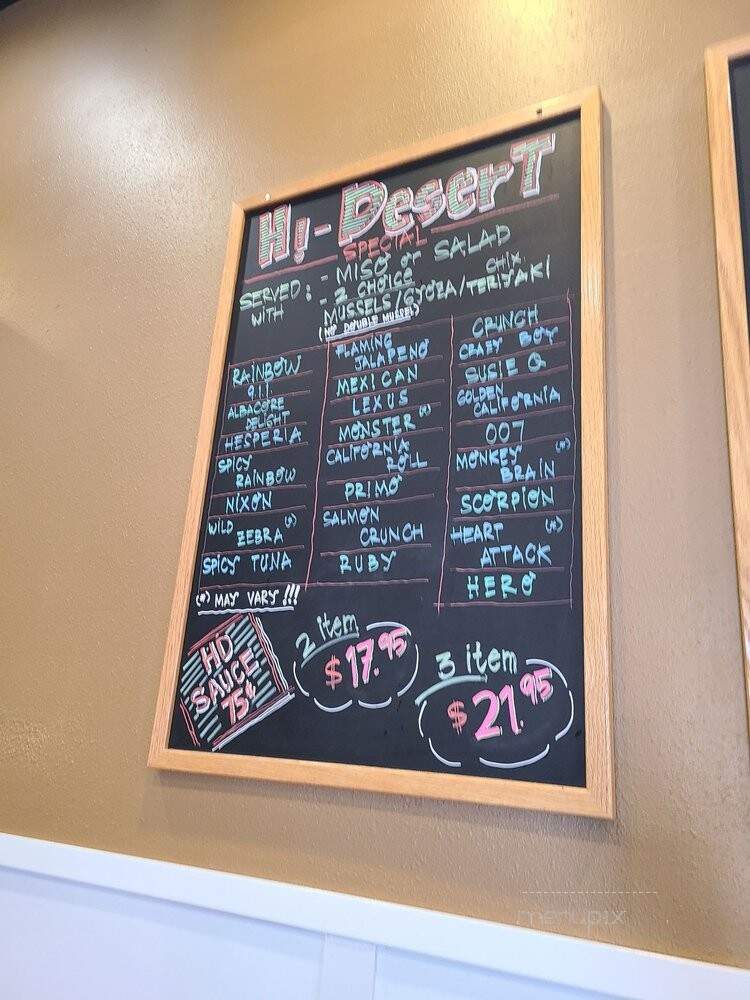 Hi-DeserT
SPECIAL
SERVED WITH : - MISO or SALAD
- 2 CHOICE
CHIX.
MUSSELS/GYOZA/TERIYAKI
(NO DOUBLE MUSSEL)
RAINBOW
9.1.1.
ALBACORE
DELIGHT
HESPERIA
SPICY
RAINBOW
NIXON
WILD
ZEBRA (*)
SPICY TUNA
(*) MAY VARY !!!
FLAMING
JALAPENO
MEXICAN
LEXUS
MONSTER (*)
CALIFORNIA
ROLL
PRIMO
SALMON
CRUNCH
RUBY
CRUNCH
CRAZY BOY
SUSIE Q
GOLDEN
CALIFORNIA
007
MONKEY (*)
BRAIN
SCORPION
HEART (*)
ATTACK
HERO
HD
SAUCE
75¢
2 item
$17.95
3 item
$21.95
menupix